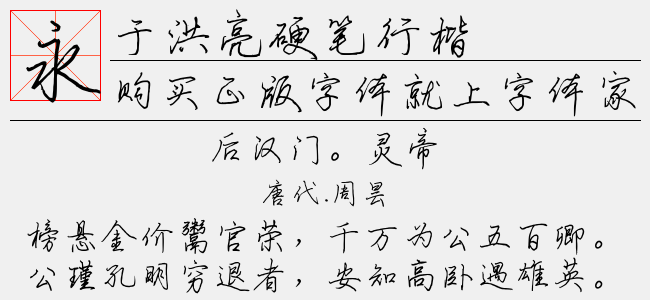 永
于洪亮硬笔行楷
购买正版字体就上字体家
后汉门。灵帝
唐代.周昙
榜悬金价鬻官荣，千万为公五百卿。
公瑾孔明穷退者，安知高卧遇雄英。